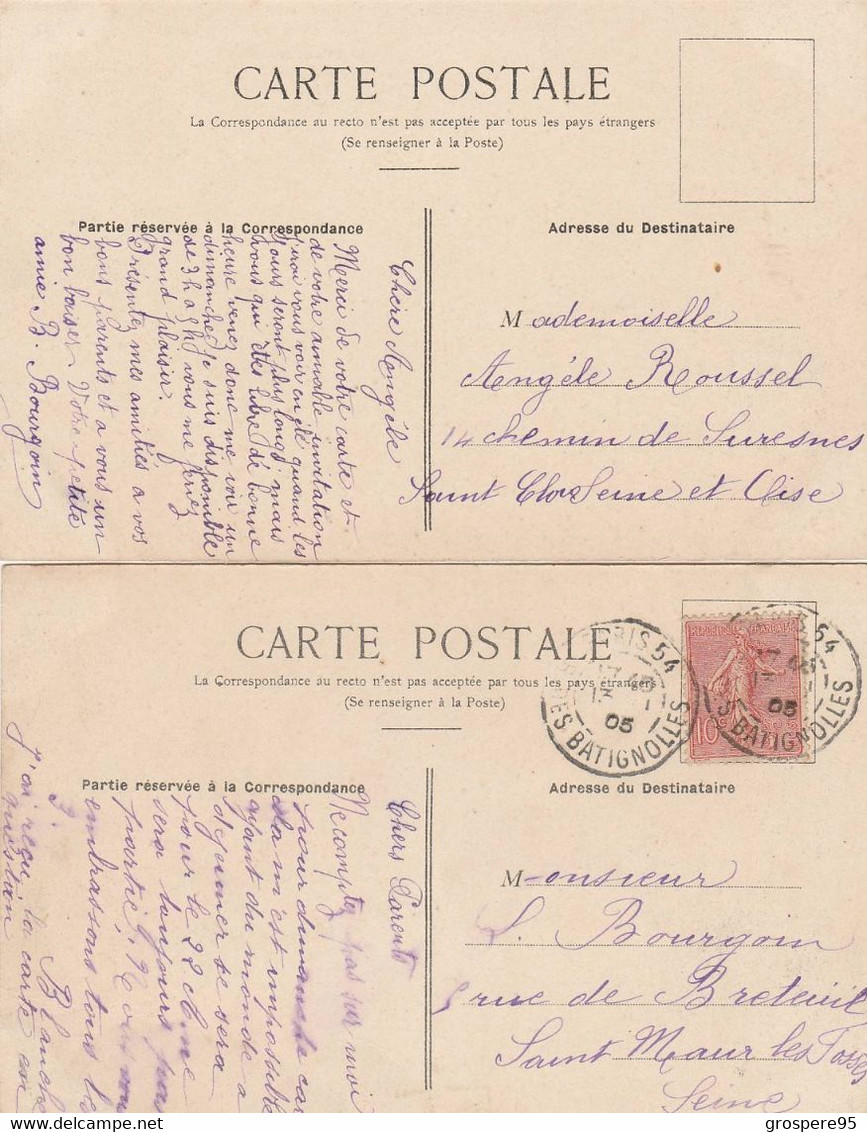 CARTE POSTALE
La Correspondance au recto n'est pas acceptée par tous les pays étrangers
(Se renseigner à la Poste)
Partie réservée à la Correspondance
Adresse du Destinataire
Chère Angèle
Merci de votre carte et
de votre aimable invitation
j'irai vous voir en été quand les
jours seront plus longs mais
vous qui êtes libre de bonne
heure venez donc me voir un
dimanche je suis disponible
de 3 h a 5 h vous me feriez
grand plaisir.
Présentez mes amitiés a vos
bons parents et a vous un
bon baiser Votre petite
amie B. Bourgoin
Mademoiselle
Angèle Roussel
14 chemin de Suresnes
Saint Clo Seine et Oise
CARTE POSTALE
La Correspondance au recto n'est pas acceptée par tous les pays étrangers
(Se renseigner à la Poste)
PARIS 54
17 45
05
BATIGNOLLES
REPUBLIQUE FRANÇAISE
10c
54
05
BATIGNOLLES
Partie réservée à la Correspondance
Adresse du Destinataire
Chers Parents
Ne comptez pas sur moi
pour dimanche car
cela m'est impossible
ayant du monde a
déjeuner ce sera
pour le 22 
sera toujours pas
partie. Nous vous
embrassons tous les
3. Blanche
J'ai reçu la carte en
question
Monsieur
L. Bourgoin
5 rue de Breteuil
Saint Maur les Fossés
Seine
© grospere95